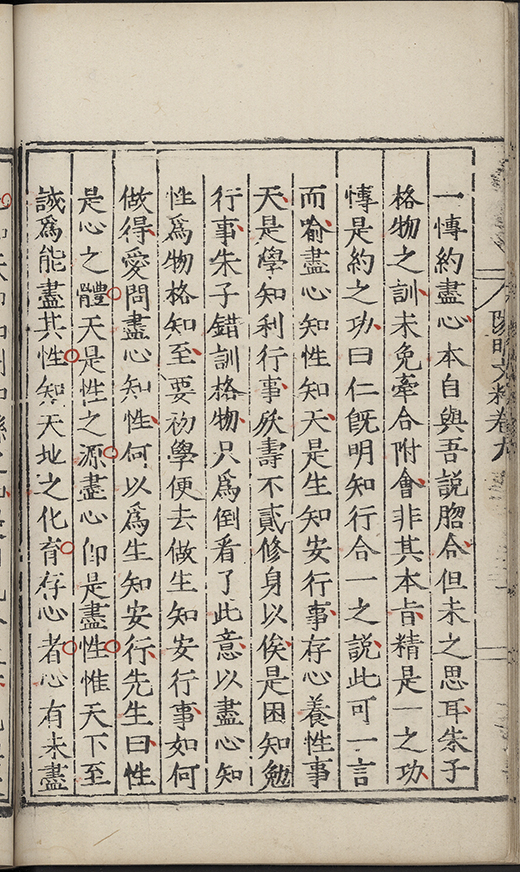 陽明文粹卷九
一慱約盡心本自與吾說脗合但未之思耳朱子
格物之訓未免牽合附會非其本旨精是一之功
慱是約之功曰仁旣明知行合一之說此可一言
而喻盡心知性知天是生知安行事存心養性事
天是學知利行事殀壽不貳修身以俟是困知勉
行事朱子錯訓格物只爲倒看了此意以盡心知
性爲物格知至要初學便去做生知安行事如何
做得愛問盡心知性何以爲生知安行先生曰性
是心之體天是性之源盡心卽是盡性惟天下至
誠爲能盡其性知天地之化育存心者心有未盡